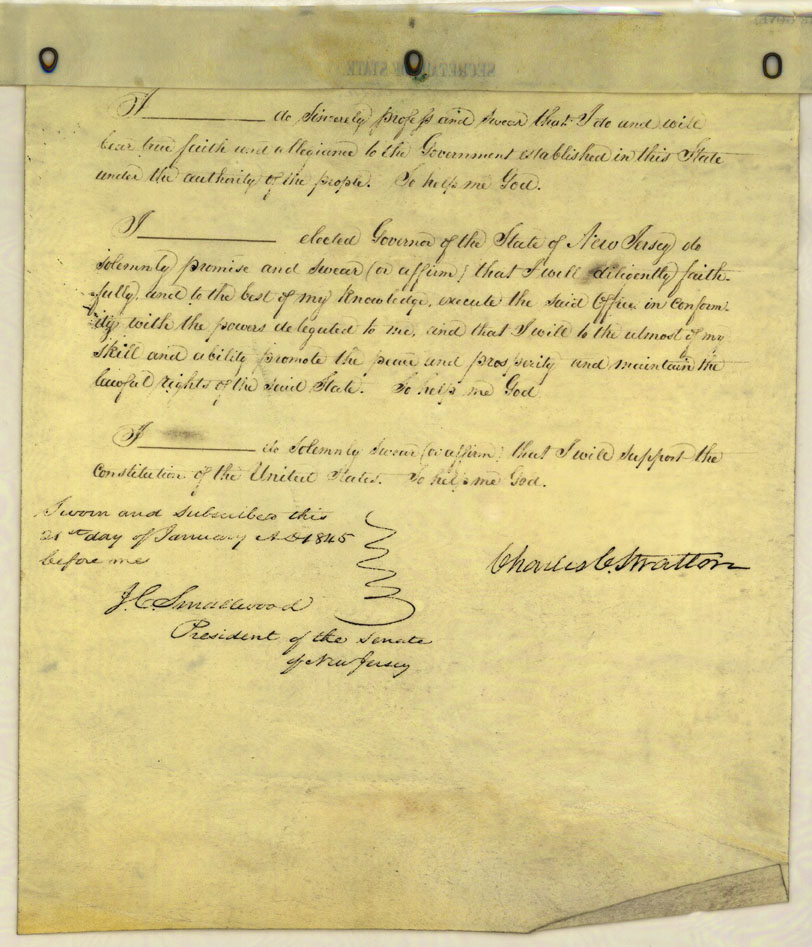 SECRETARY OF STATE.
I do Sincerely profess and swear that I do and will
bear true faith and allegiance to the Government established in this State
under the authority of the people. So help me God.
I elected Governor of the State of New Jersey do
solemnly promise and swear (or affirm) that I will diligently faith-
fully, and to the best of my knowledge, execute the said Office in conform-
ity with the powers delegated to me, and that I will to the utmost of my
skill and ability promote the peace and prosperity and maintain the
lawful rights of the said State. So help me God
I do solemnly swear (or affirm) that I will support the
constitution of the United States. So help me God.
Sworn and Subscribed this
21st day of January A D 1845
before me
Charles C. Stratton
J. C. Smallwood
President of the Senate
of New Jersey